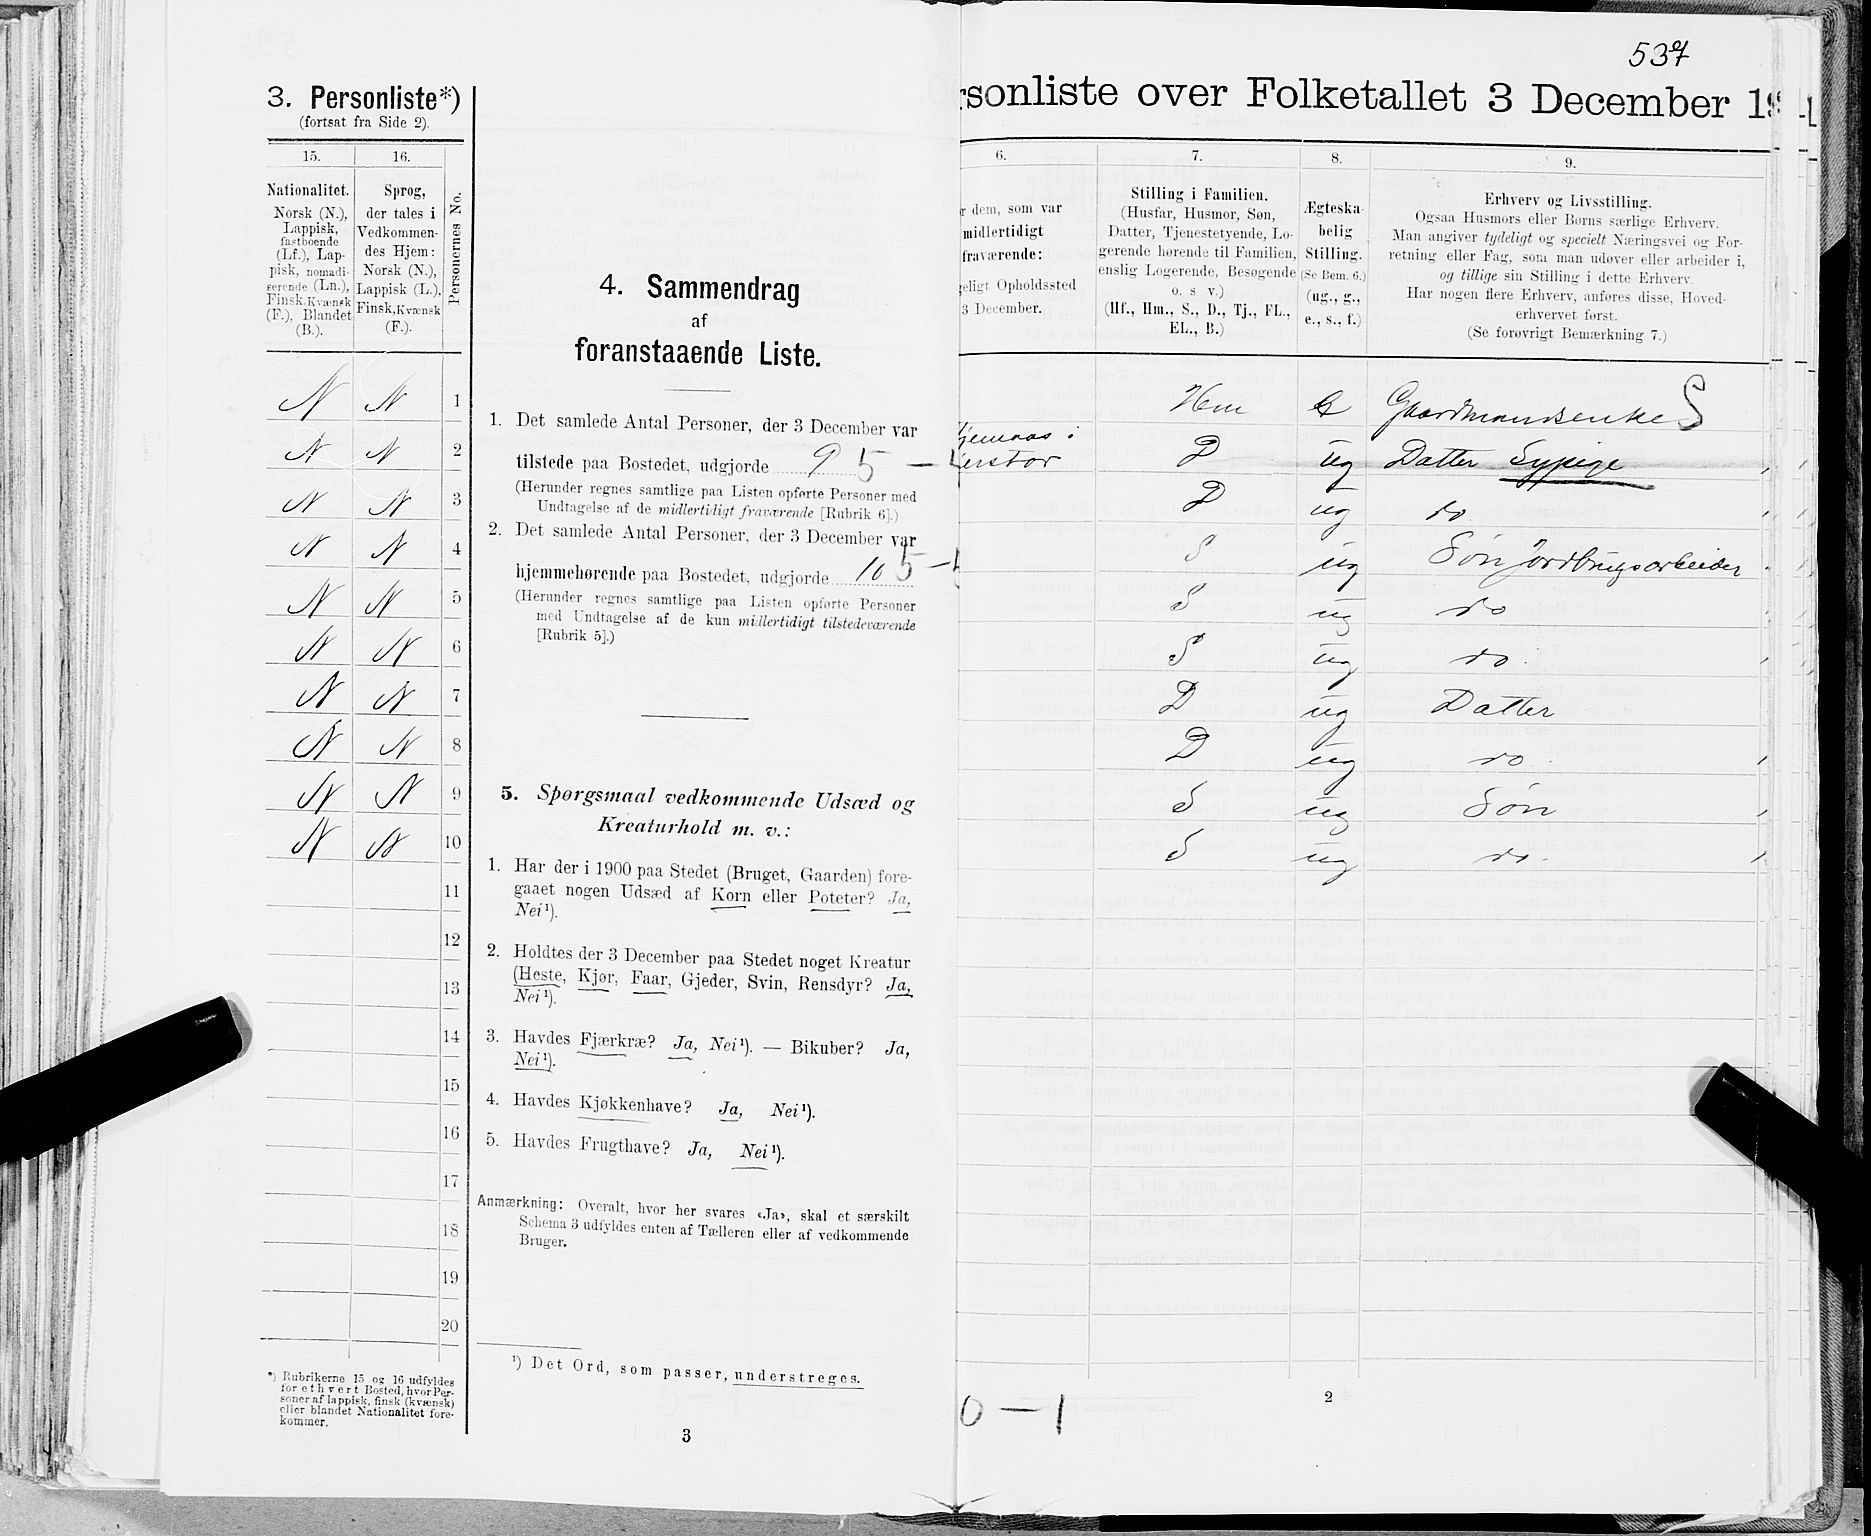 3. Personliste*)
(fortsat fra Side 2).
15.
16.
Personernes No.
Nationalitet.
Norsk (N.),
Lappisk,
fastboende
(Lf.), Lap-
pisk, nomadi-
serende (Ln.),
Finsk, Kvænsk
(F.), Blandet
(B.).
Sprog,
der tales i
Vedkommen-
des Hjem:
Norsk (N.),
Lappisk (L.),
Finsk, Kvænsk
(F.).
N N 1
N N 2
N N 3
N N 4
N N 5
N N 6
N N 7
N N 8
N N 9
N N 10
11
12
13
14
15
16
17
18
19
20
*) Rubrikerne 15 og 16 udfyldes
for ethvert Bosted, hvor Per-
soner af lappisk, finsk (kvænsk)
eller blandet Nationalitet fore-
kommer.
4. Sammendrag
af
foranstaaende Liste.
1. Det samlede Antal Personer, der 3 December var
tilstede paa Bostedet, udgjorde 9 5 –
(Herunder regnes samtlige paa Listen opførte Personer med
Undtagelse af de midlertidigt fraværende [Rubrik 6].)
2. Det samlede Antal Personer, der 3 December var
hjemmehørende paa Bostedet, udgjorde 10 5 –
(Herunder regnes samtlige paa Listen opførte Personer
med Undtagelse af de kun midlertidigt tilstedeværende
[Rubrik 5].)
5. Spørgsmaal vedkommende Udsæd og
Kreaturhold m. v.:
1. Har der i 1900 paa Stedet (Bruget, Gaarden) fore-
gaaet nogen Udsæd af Korn eller Poteter? Ja,
Nei¹).
2. Holdtes der 3 December paa Stedet noget Kreatur
(Heste, Kjør, Faar, Gjeder, Svin, Rensdyr? Ja,
Nei¹).
3. Havdes Fjærkræ? Ja, Nei¹). — Bikuber? Ja,
Nei¹).
4. Havdes Kjøkkenhave? Ja, Nei¹).
5. Havdes Frugthave? Ja, Nei¹).
Anmærkning: Overalt, hvor her svares «Ja», skal et særskilt
Schema 3 udfyldes enten af Tælleren eller af vedkommende
Bruger.
¹) Det Ord, som passer, understreges.
3
537
rsonliste over Folketallet 3 December 19
6.
7.
8.
9.
r dem, som var
midlertidigt
fraværende:
geligt Opholdssted
3 December.
Stilling i Familien.
(Husfar, Husmor, Søn,
Datter, Tjenestetyende, Lo-
gerende hørende til Familien,
enslig Logerende, Besøgende
o. s v.)
(Hf., Hm., S., D., Tj., FL.,
EL., B.)
Ægteska-
belig
Stilling.
(Se Bem. 6.)
(ug., g.,
e., s., f.)
Erhverv og Livsstilling.
Ogsaa Husmors eller Børns særlige Erhverv.
Man angiver tydeligt og specielt Næringsvei og For-
retning eller Fag, som man udøver eller arbeider i,
og tillige sin Stilling i dette Erhverv.
Har nogen flere Erhverv, anføres disse, Hoved-
erhvervet først.
(Se forøvrigt Bemærkning 7.)
Hm Gaardmandsenke S
D ug Datter Sypige
D ug do
S ug Søn Jordbrugsarbeider
S ug do
S ug do
D ug Datter
D ug do
S ug Søn
S ug do
0 – 1
2